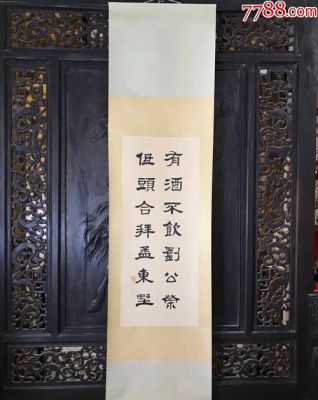 7788.com
有酒不飲劉公榮
低頭合拜孟東墅